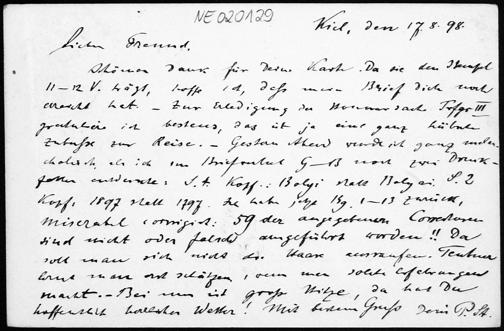 NE020129
Kiel, den 17.8.98.
Lieber Freund,
Schönen Dank für Deine Karte. Da sie den Stempel
11–12 V. trägt, hoffe ich, daß mein Brief Dich noch
erreicht hat. – Zur Erledigung der
gratuliere ich bestens, das ist ja eine ganz hübsche
Zubuße zur Reise. – Gestern Abend wurde ich ganz melan-
cholisch, als ich im Briefwechsel G–B noch zwei Druck-
fehler entdeckte: S. 1 Kopf: Bolyi statt Bolyai. S. 2
Kopf: 1897 statt 1797. Sie habe jetzt Bg. 1–13 zurück,
miserabel corrigirt: 59 der angegebenen Correkturen
sind nicht oder falsch ausgeführt worden!! Da
soll man sich nicht die Haare ausraufen. Teubner
lernt man erst schätzen, wenn man solche Erfahrungen
macht. – Bei uns ist große Hitze, da hast Du
hoffentlich herrliches Wetter! Mit bestem Gruß Dein P. St.